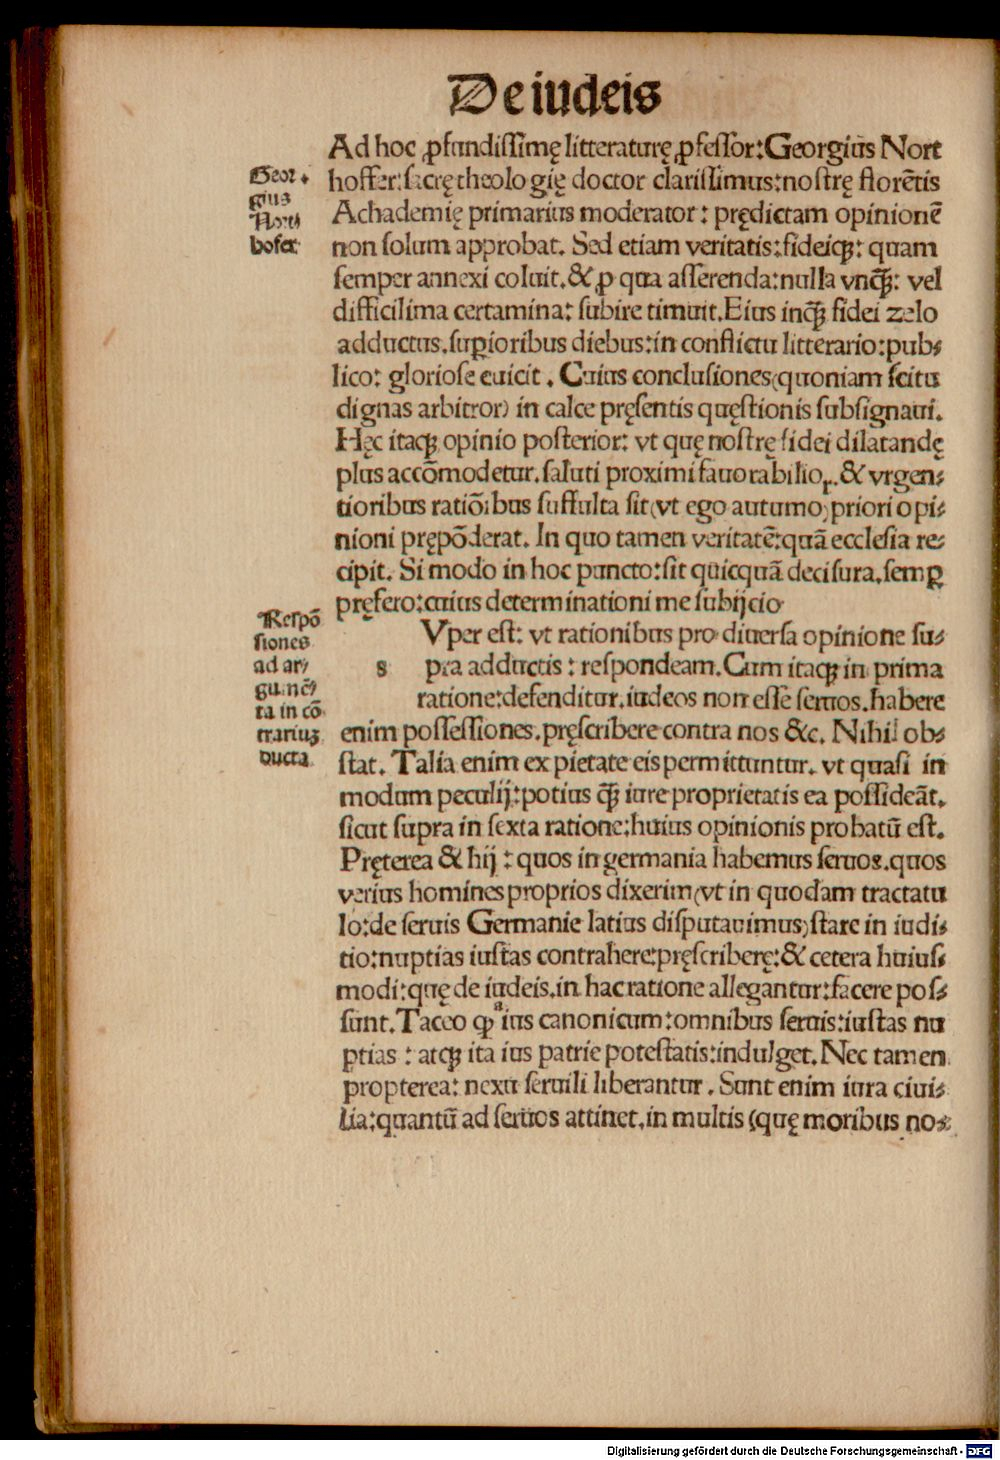 De iudeis
Ad hoc ꝓfundissimę litteraturę ꝓfessor: Georgius Nort
hoffer: sacrę theologię doctor clarissimus: nostrę florẽtis
Achademię primarius moderator: prędictam opinionẽ
non solum approbat. Sed etiam veritatis: fideiqꝫ: quam
semper annexi coluit. & ꝓ qua asserenda: nulla vnꝗ̃: vel
difficilima certamina: subire timuit. Eius inꝗ̃ fidei zelo
adductus. suꝑioribus diebus: in conflictu litterario: pub⸗
lico: gloriose euicit. Cuius conclusiones (quoniam scitu
dignas arbitror) in calce pręsentis quęstionis subsignaui.
Hęc itaqꝫ opinio posterior: vt quę nostrę fidei dilatandę
plus accõmodetur. saluti proximi fauorabilioꝝ. & vrgen⸗
tioribus ratiõibus suffulta sit (vt ego autumo) priori opi⸗
nioni prępõderat. In quo tamen veritatẽ: quã ecclesia re⸗
cipit. Si modo in hoc puncto: sit quicquã decisura. semꝑ
pręfero: cuius determinationi me subijcio
Vper est: vt rationibus pro diuersa opinione su⸗
s pra adductis: respondeam. Cum itaqꝫ in prima
ratione: defenditur. iudeos non esse seruos. habere
enim possessiones. pręscribere contra nos &c. Nihil ob⸗
stat. Talia enim ex pietate eis permittuntur. vt quasi in
modum peculij: potius ꝗ̃ iure proprietatis ea possideãt.
sicut supra in sexta ratione: huius opinionis probatũ est.
Pręterea & hij: quos in germania habemus seruos. quos
verius homines proprios dixerim (vt in quodam tractatu
lo: de seruis Germanie latius disputauimus) stare in iudi⸗
tio: nuptias iustas contrahere: pręscriberę: & cetera huius⸗
modi: quę de iudeis. in hac ratione allegantur: facere pos⸗
sunt. Taceo ꝙ ius canonicum: omnibus seruis: iustas nu
ptias: atqꝫ ita ius patrie potestatis: indulget. Nec tamen
propterea: nexu seruili liberantur. Sunt enim iura ciui⸗
lia: quantũ ad seruos attinet. in multis (quę moribus no⸗
Geor
gius
Nort
hofer
Respõ
siones
ad ar⸗
gumẽ⸗
ta in cõ
trariuꝫ
ducta
Digitalisierung gefördert durch die Deutsche Forschungsgemeinschaft - DFG